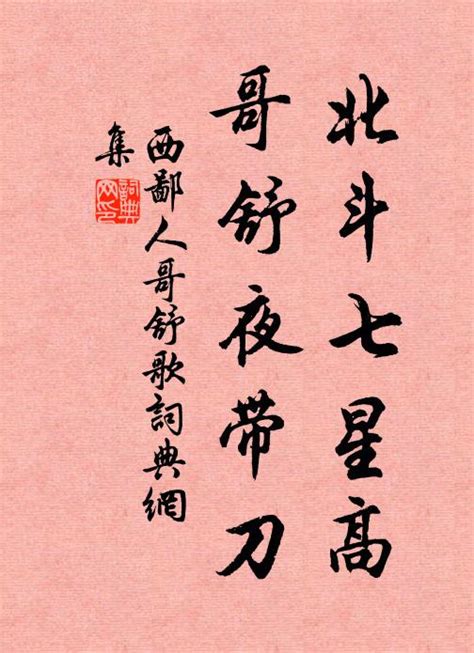 北斗七星高
哥舒夜带刀
西鄙人哥舒歌詞典網
集
詞典
网印